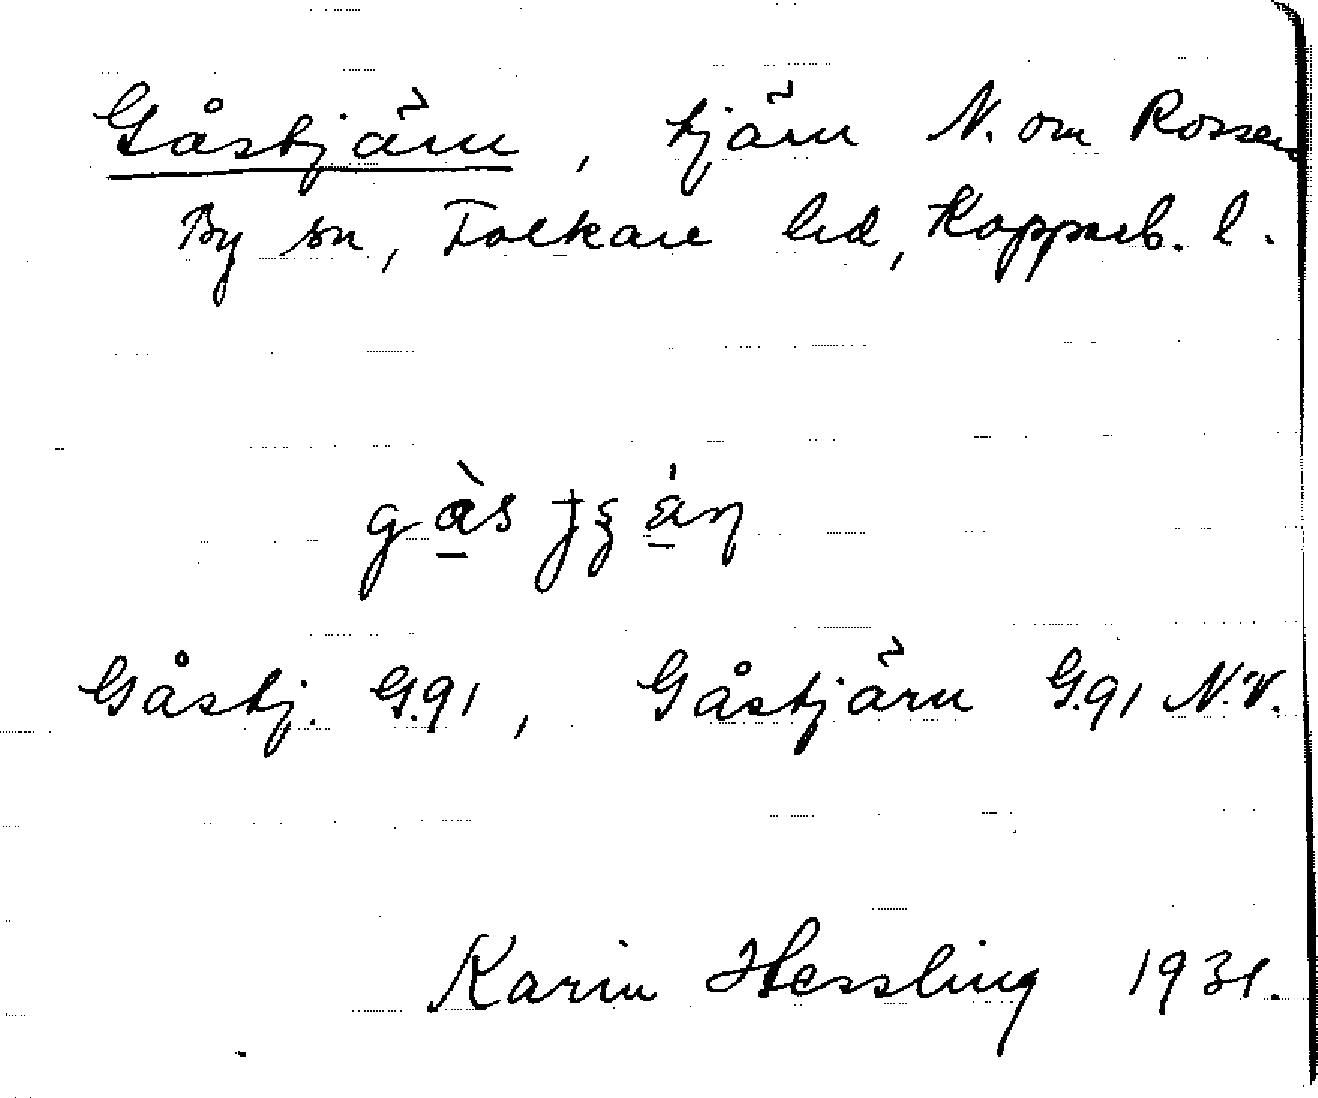 Gåstjärn, tjärn N. om Rossen
By sn, Folkare hd, Kopparb. l.
Gåstj. G.91, Gåstjärn G.91 N.V.
Karin Hessling 1931.